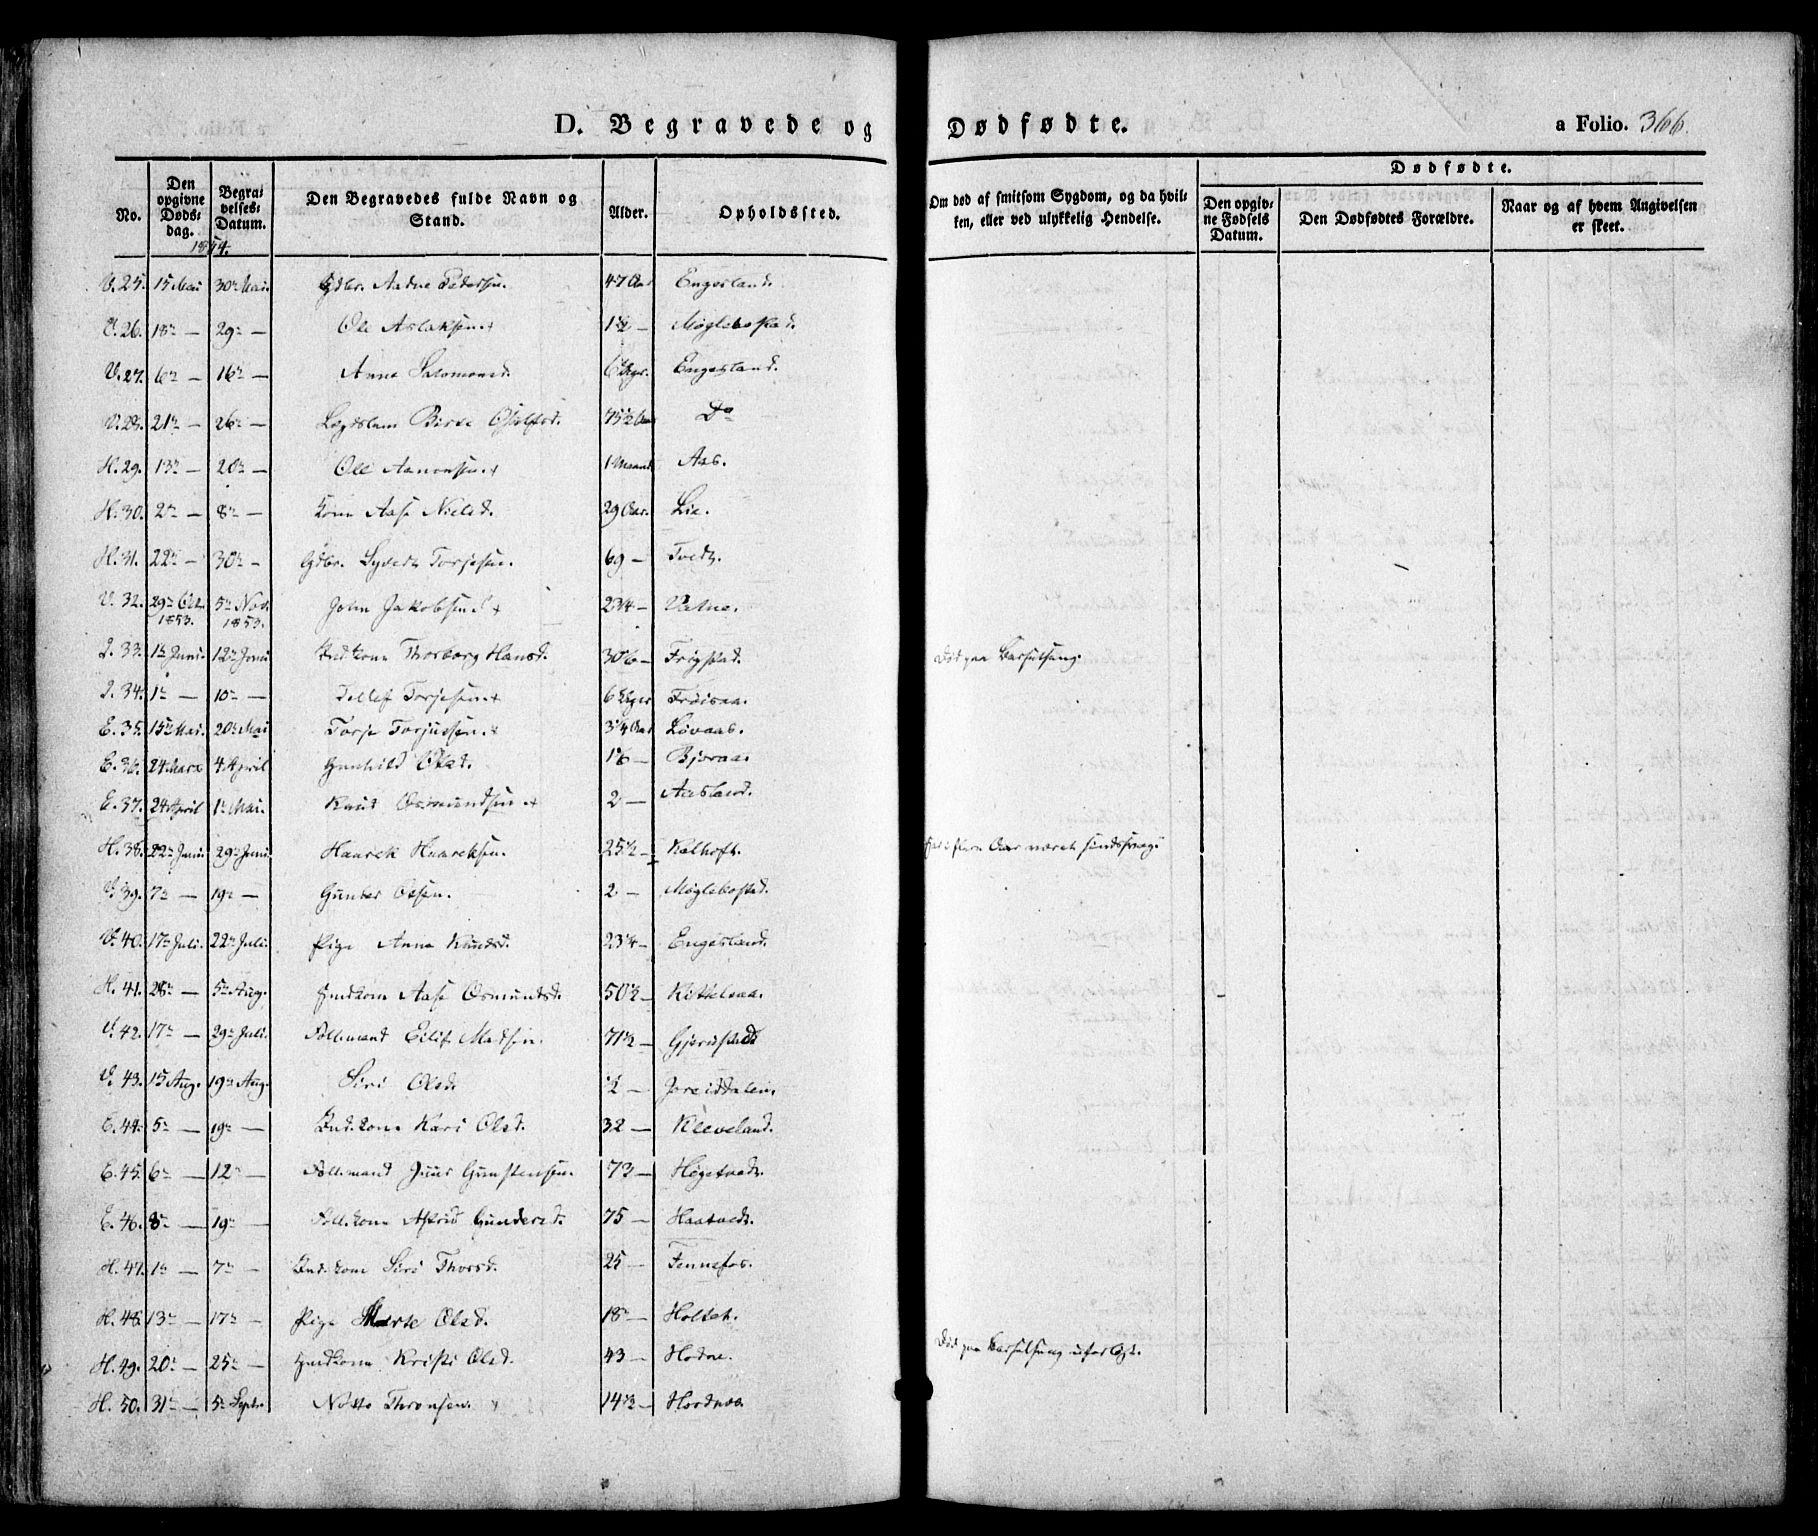 D. Begravede og Dødfødte. a Folio. 366.
No. | Den opgivne Døds-dag. | Begravelses-Datum. | Den Begravedes fulde Navn og Stand. | Alder. | Opholdssted. | Om død af smitsom Sygdom, og da hvilken, eller ved ulykkelig Hendelse. | Dødfødte. Den opgivne Fødsels Datum. | Den Dødfødtes Forældre. | Naar og af hvem Angivelsen er skeet.
1854.
V. 25. 15 Mai 30te Mai. Gdbr. Aadne Pedersen. 47 Aar Engesland.
V. 26. 18de — 29de — Ole Aslaksen. 1½ — Møglebostad.
V. 27. 6te — 16de — Anne Salomonsd. 6 Uger. Engesland.
V. 28. 21de — 26de — Lægdslem Birte 75½ Aar Do
H. 29. 13de — 20de — Ole Aanonsen. 1 Maaned Aas.
H. 30. 2den — 8de — Kone Aase Nielsd. 29 Aar. Lie.
H. 31. 22de — 30te — Gdbr. Syvert Torjesen. 69 — Tvedt.
V. 32. 29de Oct. 1853. 5te Nov. 1853. John Jakobsen 2¾ — Vatne.
I. 33. 1ste Juni. 12te Juni Indkone Thorborg Hansd. 30 — Frigstad. Død paa Barselseng.
I. 34. 1ste — 10de — Tellef Torjesen. 6 Uger Frøisaa.
E. 35. 15de Mai. 20de Mai Torje Torjussen. ¾ Aar Løvaas.
E. 36. 24 Marz 4 April Gunhild Olsd. — Bjoraa.
E. 37. 24 April 1ste Mai. Knud Osmundsen. 2 — Aasland.
H. 38. 22de Juni. 29de Juni. Haarek Haareksen. 25½ — Kalhoft. Har i flere Aar været sindssvag.
V. 39. 7de — 19de — Gunder Olsen. 2 — Møglebostad.
V. 40. 17de Juli. 22de Juli. Pige Anne Knudsd. 23¼ — Engesland.
H. 41. 28de — 5te Aug. Huskone Aase Osmundsd. 50½ — Kittelsaa.
V. 42. 17de — 29de Juli. Follemand Eilif Madsen. 71½ — Gjerustad
V. 43. 15 Aug. 19de Aug. Siri Olsd. ½ — Joreiddalen.
E. 44. 5te — 19de — Indkone Kari Olsd. 32 — Kleveland.
E. 45. 6te — 12te — Follemand Juur Gunstensen. 73 — Høgetvedt.
E. 46. 8de — 19de — Follekone Astrid Gundersd. 75 — Haatvedt.
H. 47. 1ste — 7de — Indkone Siri Thorsd. 25 — Fennefos.
H. 48. 13de — 17de — Pige Marte Olsd. 18 — Holtet.
H. 49. 20de — 25de — Huskone Kristi Olsd. 43 — Hodne. Død paa Barselseng uforløst.
H. 50. 31te — 5te Septr. Notto Thronsen. 14½ — Hordnes